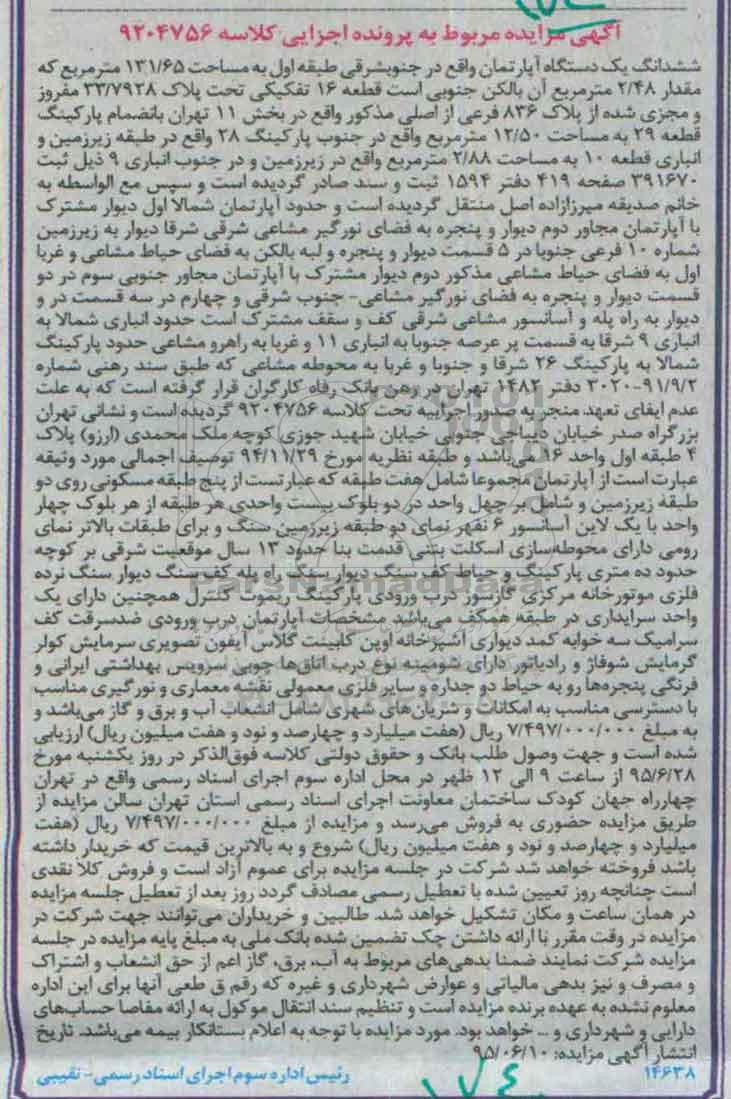 آگهی مزایده مربوط به پرونده اجرایی کلاسه ۹۲۰۴۷۵۶
ششدانگ یک دستگاه آپارتمان واقع در جنوبشرقی طبقه اول به مساحت ۱۳۱/۶۵ مترمربع که
مقدار ۲/۴۸ مترمربع آن بالکن جنوبی است قطعه ۱۶ تفکیکی تحت پلاک ۳۳/۷۹۲۸ مفروز
و مجزی شده از پلاک ۸۳۶ فرعی از اصلی مذکور واقع در بخش ۱۱ تهران بانضمام پارکینگ
قطعه ۲۹ به مساحت ۱۲/۵۰ مترمربع واقع در جنوب پارکینگ ۲۸ واقع در طبقه زیرزمین و
انباری قطعه ۱۰ به مساحت ۲/۸۸ مترمربع واقع در زیرزمین و در جنوب انباری ۹ ذیل ثبت
۳۹۱۶۷۰ صفحه ۴۱۹ دفتر ۱۵۹۴ ثبت و سند صادر گردیده است و سپس مع الواسطه به
خانم صدیقه میرزازاده اصل منتقل گردیده است و حدود آپارتمان شمالا اول دیوار مشترک
با آپارتمان مجاور دوم دیوار و پنجره به فضای نورگیر مشاعی شرقی شرقا دیوار به زیرزمین
شماره ۱۰ فرعی جنوبا در ۵ قسمت دیوار و پنجره و لبه بالکن به فضای حیاط مشاعی و غربا
اول به فضای حیاط مشاعی مذکور دوم دیوار مشترک با آپارتمان مجاور جنوبی سوم در دو
قسمت دیوار و پنجره به فضای نورگیر مشاعی- جنوب شرقی و چهارم در سه قسمت در و
دیوار به راه پله و آسانسور مشاعی شرقی کف و سقف مشترک است حدود انباری شمالا به
انباری ۹ شرقا به قسمت پر عرصه جنوبا به انباری ۱۱ و غربا به راهرو مشاعی حدود پارکینگ
شمالا به پارکینگ ۲۶ شرقا و جنوبا و غربا به محوطه مشاعی که طبق سند رهنی شماره
۳۰۲۰-۹۱/۹/۲ دفتر ۱۴۸۲ تهران در رهن بانک رفاه کارگران قرار گرفته است که به علت
عدم ایفای تعهد منجر به صدور اجراییه تحت کلاسه ۹۲۰۴۷۵۶ گردیده است و نشانی تهران
بزرگراه صدر خیابان دیباجی جنوبی خیابان شهید جوزی کوچه ملک محمدی (ارزو) پلاک
۴ طبقه اول واحد ۱۶ می‌باشد و طبقه نظریه مورخ ۹۴/۱۱/۲۹ توصیف اجمالی مورد وثیقه
عبارت است از آپارتمان مجموعا شامل هفت طبقه که عبارتست از پنج طبقه مسکونی روی دو
طبقه زیرزمین و شامل بر چهل واحد در دو بلوک بیست واحدی هر طبقه از هر بلوک چهار
واحد با یک لاین آسانسور ۶ نفهر نمای دو طبقه زیرزمین سنگ و برای طبقات بالاتر نمای
رومی دارای محوطه‌سازی اسکلت بتنی قدمت بنا حدود ۱۳ سال موقعیت شرقی بر کوچه
حدود ده متری پارکینگ و حیاط کف سنگ دیوار سنگ راه پله کف سنگ دیوار سنگ نرده
فلزی موتورخانه مرکزی گازسوز درب ورودی پارکینگ ریموت کنترل همچنین دارای یک
واحد سرایداری در طبقه همکف می‌باشد مشخصات آپارتمان درب ورودی ضدسرقت کف
سرامیک سه خوابه کمد دیواری آشپزخانه اوپن کابینت گلاس آیفون تصویری سرمایش کولر
گرمایش شوفاژ و رادیاتور دارای شومینه نوع درب اتاق‌ها چوبی سرویس بهداشتی ایرانی و
فرنگی پنجره‌ها رو به حیاط دو جداره و سایر فلزی معمولی نقشه معماری و نورگیری مناسب
با دسترسی مناسب به امکانات و شریان‌های شهری شامل انشعاب آب و برق و گاز می‌باشد و
به مبلغ ۷/۴۹۷/۰۰۰/۰۰۰ ریال (هفت میلیارد و چهارصد و نود و هفت میلیون ریال) ارزیابی
شده است و جهت وصول طلب بانک و حقوق دولتی کلاسه فوق‌الذکر در روز یکشنبه مورخ
۹۵/۶/۲۸ از ساعت ۹ الی ۱۲ ظهر در محل اداره سوم اجرای اسناد رسمی واقع در تهران
چهارراه جهان کودک ساختمان معاونت اجرای اسناد رسمی استان تهران سالن مزایده از
طریق مزایده حضوری به فروش می‌رسد و مزایده از مبلغ ۷/۴۹۷/۰۰۰/۰۰۰ ریال (هفت
میلیارد و چهارصد و نود و هفت میلیون ریال) شروع و به بالاترین قیمت که خریدار داشته
باشد فروخته خواهد شد شرکت در جلسه مزایده برای عموم آزاد است و فروش کلا نقدی
است چنانچه روز تعیین شده با تعطیل رسمی مصادف گردد روز بعد از تعطیل جلسه مزایده
در همان ساعت و مکان تشکیل خواهد شد. طالبین و خریداران می‌توانند جهت شرکت در
مزایده در وقت مقرر با ارائه داشتن چک تضمین شده بانک ملی به مبلغ پایه مزایده در جلسه
مزایده شرکت نمایند ضمنا بدهی‌های مربوط به آب، برق، گاز اعم از حق انشعاب و اشتراک
و مصرف و نیز بدهی مالیاتی و عوارض شهرداری و غیره که رقم ق طعی آنها برای این اداره
معلوم نشده به عهده برنده مزایده است و تنظیم سند انتقال موکول به ارائه مفاصا حساب‌های
دارایی و شهرداری و ... خواهد بود. مورد مزایده با توجه به اعلام بستانکار بیمه می‌باشد. تاریخ
انتشار آگهی مزایده: ۹۵/۰۶/۱۰
۱۴۶۳۸ رئیس اداره سوم اجرای اسناد رسمی- نقیبی
ParsNamadData